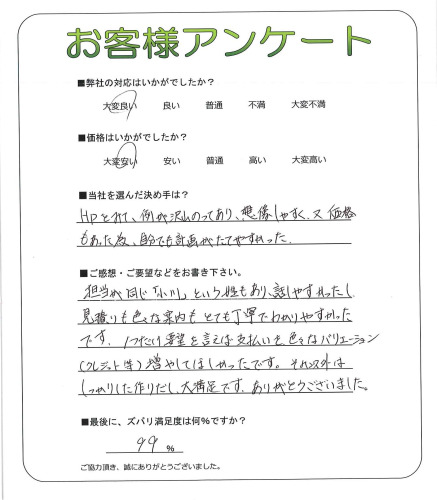 お客様アンケート
■弊社の対応はいかがでしたか？
大変良い 良い 普通 不満 大変不満
■価格はいかがでしたか？
大変安い 安い 普通 高い 大変高い
■当社を選んだ決め手は？
HPを見て、例が沢山のってあり、想像しやすく、又、価格
もあった為、自分でも計画がたてやすかった。
■ご感想・ご要望などをお書き下さい。
担当が同じ「小川」という姓もあり、話しやすかったし
見積りも色々な案内もとても丁寧でわかりやすかった
です。1つだけ要望を言えば支払いも色々なバリエーション
(クレジット等)増やしてほしかったです。それ以外は
しっかりした作りだし、大満足です。ありがとうございました。
■最後に、ズバリ満足度は何%ですか？
99 %
ご協力頂き、誠にありがとうございました。